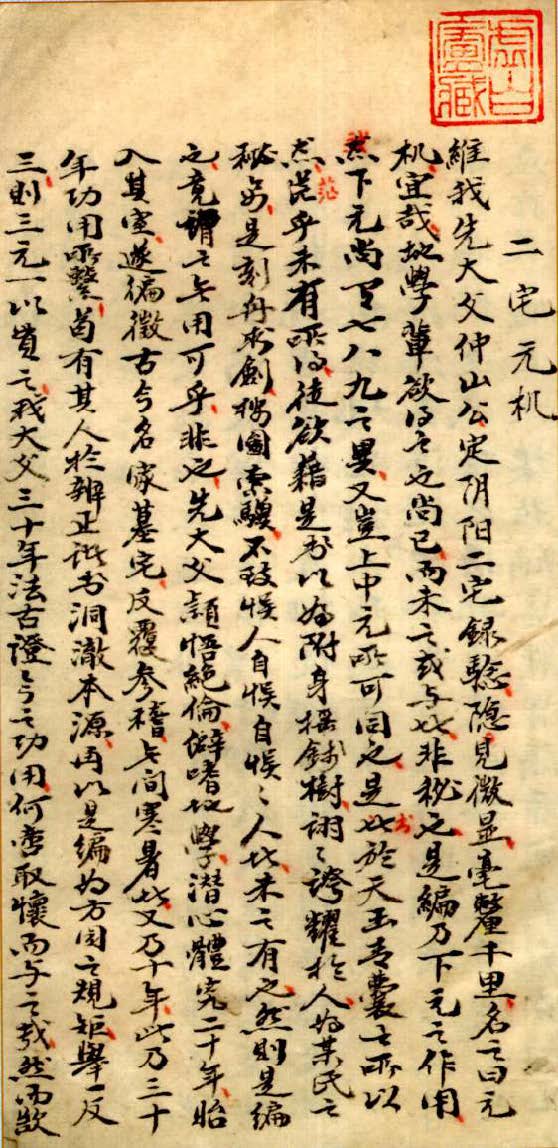 虛白廬藏
二宅元机
維我先大父仲山公定阴阳二宅録驗隐見微显毫釐千里名之曰元
机宜哉地學輩欲得之也尚已而未之或与者非秘之是編乃下元之作用
然下元尚有七八九之異又豈上中元所可同之是书於天玉青囊之所以
然茫乎未有所得徒欲藉是书以为附身搖錢樹詡〻誇耀於人为某氏之
秘旁是刻舟求劍按圖索驥不致悮人自悮自悮〻人者未之有也然則是編
之竟謂之无用可乎非也先大父颖悟絕倫僻嗜地學潛心體究二十年始
入其室遂徧徵古今名家墓宅反覆参稽无间寒暑者又乃十年此乃三十
年功用所繫苟有其人於辨正諸书洞澈本源再以是編为方圆之規矩舉一反
三則三元一以貫之我大父三十年法古證今之功用何嗇取懷而与之哉然而